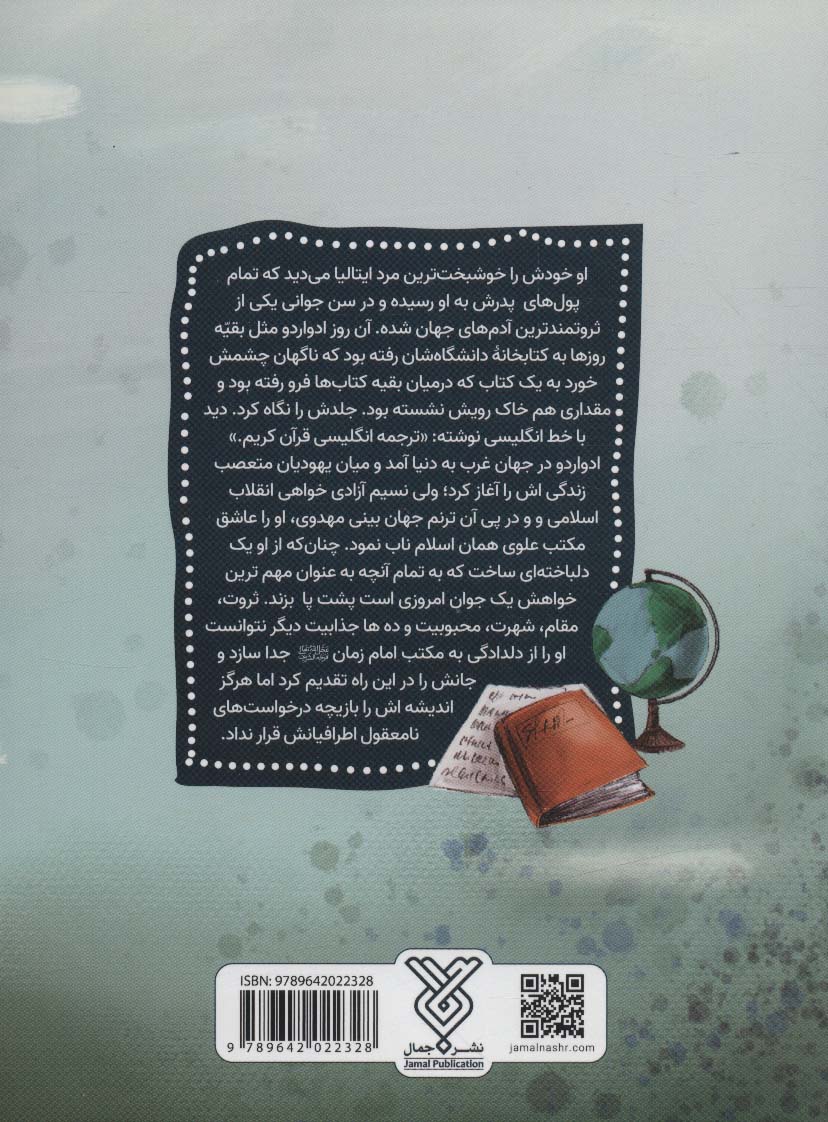 او خودش را خوشبخت‌ترین مرد ایتالیا می‌دید که تمام
پول‌های پدرش به او رسیده و در سن جوانی یکی از
ثروتمندترین آدم‌های جهان شده. آن روز ادواردو مثل بقیّه
روزها به کتابخانهٔ دانشگاه‌شان رفته بود که ناگهان چشمش
خورد به یک کتاب که درمیان بقیه کتاب‌ها فرو رفته بود و
مقداری هم خاک رویش نشسته بود. جلدش را نگاه کرد. دید
با خط انگلیسی نوشته: «ترجمه انگلیسی قرآن کریم.»
ادواردو در جهان غرب به دنیا آمد و میان یهودیان متعصب
زندگی اش را آغاز کرد؛ ولی نسیم آزادی خواهی انقلاب
اسلامی و و در پی آن ترنم جهان بینی مهدوی، او را عاشق
مکتب علوی همان اسلام ناب نمود. چنان‌که از او یک
دلباخته‌ای ساخت که به تمام آنچه به عنوان مهم ترین
خواهش یک جوان امروزی است پشت پا بزند. ثروت،
مقام، شهرت، محبوبیت و ده ها جذابیت دیگر نتوانست
او را از دلدادگی به مکتب امام زمان جدا سازد و
جانش را در این راه تقدیم کرد اما هرگز
اندیشه اش را بازیچه درخواست‌های
نامعقول اطرافیانش قرار نداد.
ISBN: 9789642022328
9 789642 022328
نشر جمال
Jamal Publication
jamalnashr.com